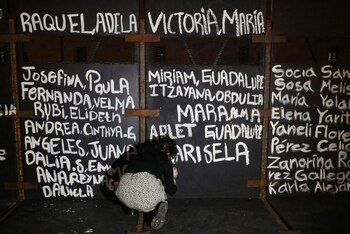 RAQUEL, ADELA
VICTORIA, MARÍA
Josefina, Paula
Fernanda, Velma
Rubí, Elideth
Andrea, Cinthya, S
Angeles, Juana
Dalia, S
Miriam, Guadalupe
Itzayana, Obdulia
Mara, Alma
Guadalupe
Marisela
Socia San
Sosa Melis
María Yola
Elena Yarit
Yaneli Flore
Pérez Celi
Zanorina Ro
Pérez Galleg
Karla Aleja